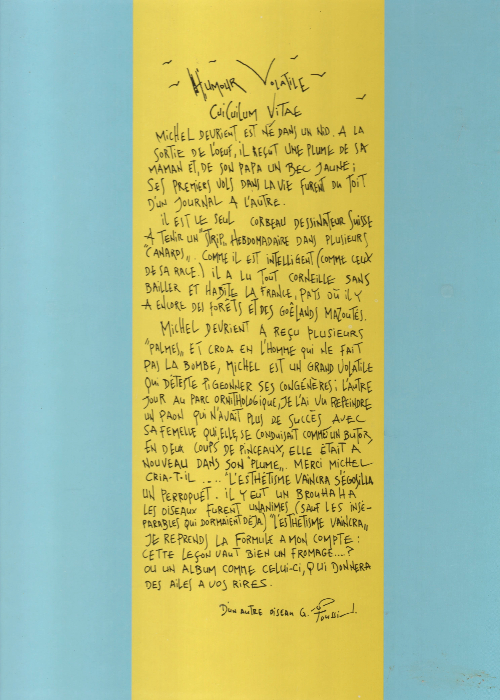 HUMOUR VOLATILE
CUICUILUM VITAE
MICHEL DEVRIENT EST NÉ DANS UN NID. A LA
SORTIE DE L'OEUF, IL REÇUT UNE PLUME DE SA
MAMAN ET, DE SON PAPA UN BEC JAUNE;
SES PREMIERS VOLS DANS LA VIE FURENT DU TOIT
D'UN JOURNAL A L'AUTRE.
IL EST LE SEUL CORBEAU DESSINATEUR SUISSE
A TENIR UN "STRIP" HEBDOMADAIRE DANS PLUSIEURS
"CANARDS". COMME IL EST INTELLIGENT (COMME CEUX
DE SA RACE.) IL A LU TOUT CORNEILLE SANS
BAILLER ET HABITE LA FRANCE, PAYS OÙ IL Y
A ENCORE DES FORÊTS ET DES GOÊLANDS MAZOUTÉS.
MICHEL DEVRIENT A REÇU PLUSIEURS
"PALMES" ET CROA EN L'HOMME QUI NE FAIT
PAS LA BOMBE, MICHEL EST UN GRAND VOLATILE
QUI DÉTESTE PIGEONNER SES CONGÉNÈRES; L'AUTRE
JOUR AU PARC ORNITHOLOGIQUE, JE L'AI VU REPEINDRE
UN PAON QUI N'AVAIT PLUS DE SUCCÈS AVEC
SA FEMELLE QUI, ELLE, SE CONDUISAIT COMME UN BUTOR,
EN DEUX COUPS DE PINCEAUX, ELLE ÉTAIT A
NOUVEAU DANS SON "PLUME". MERCI MICHEL
CRIA-T-IL .... "L'ESTHÉTISME VAINCRA S'ÉGOSILLA
UN PERROQUET. IL Y EUT UN BROUHAHA
LES OISEAUX FURENT UNANIMES (SAUF LES INSÉ-
PARABLES QUI DORMAIENT DÉJA) "L'ESTHETISME VAINCRA"
JE REPRENDS LA FORMULE A MON COMPTE:
CETTE LEÇON VAUT BIEN UN FROMAGE....?
OU UN ALBUM COMME CELUI-CI, QUI DONNERA
DES AILES A VOS RIRES.
D'UN AUTRE OISEAU G.